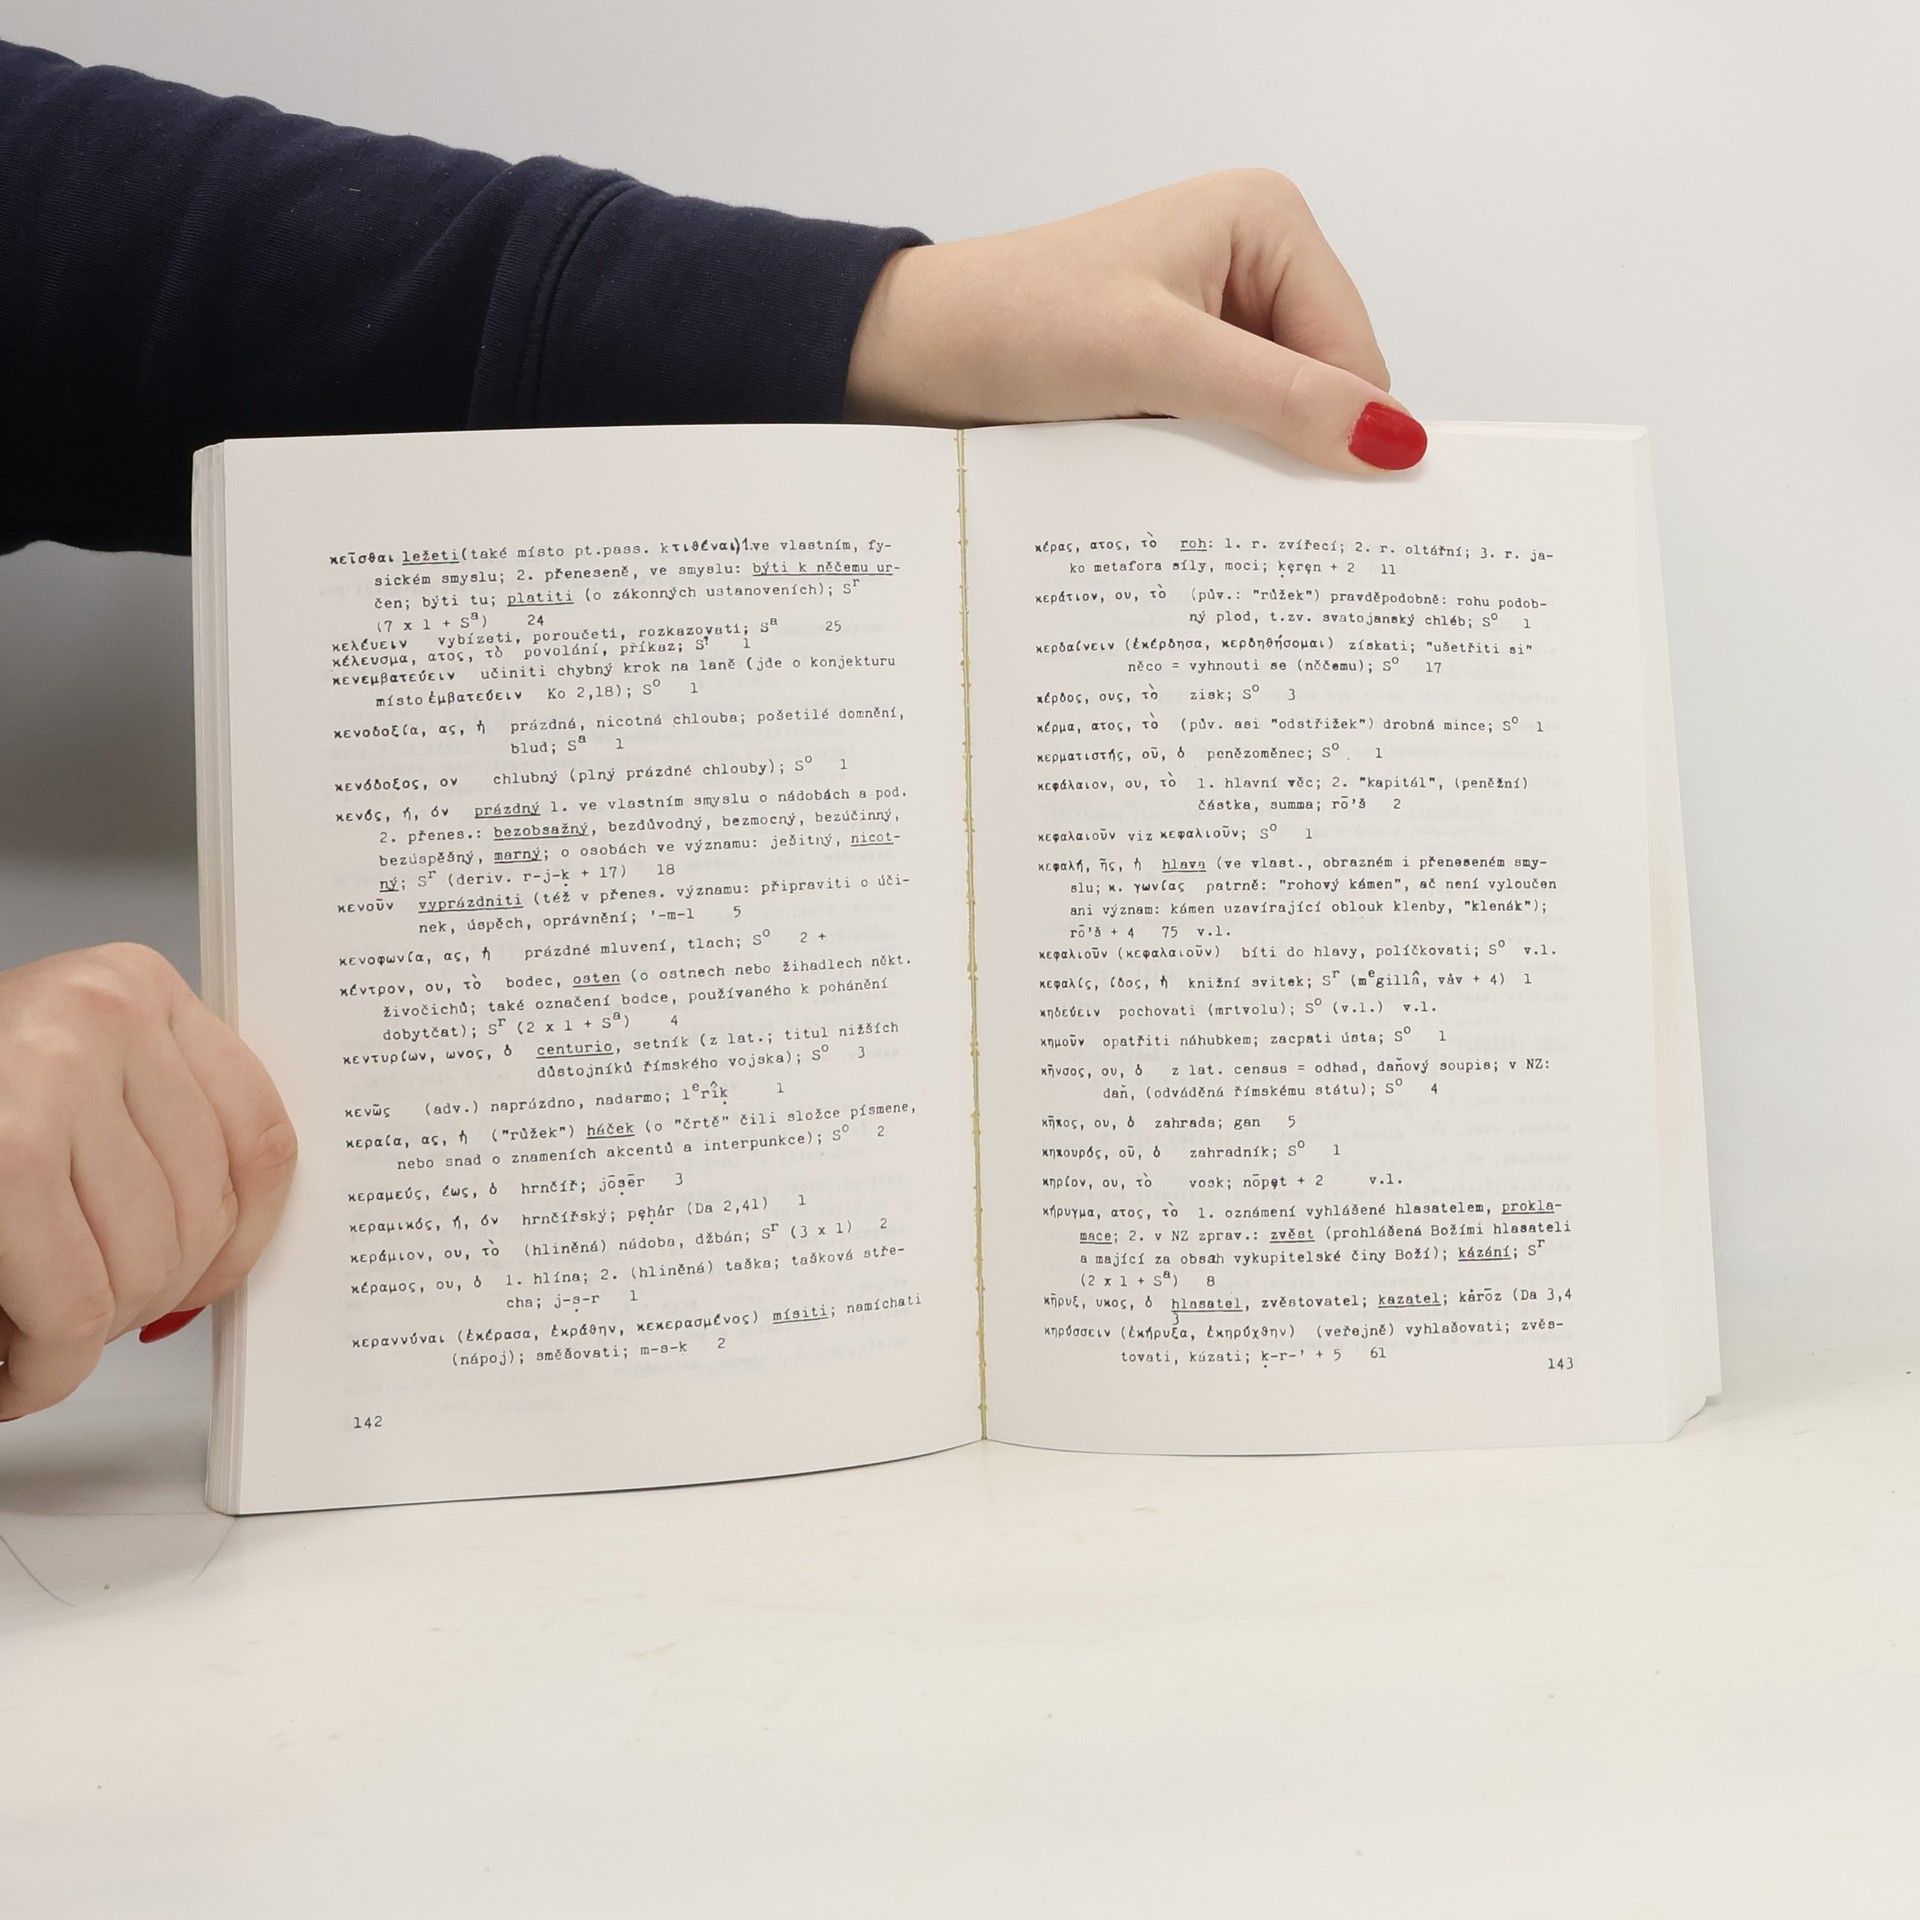 κεῖσθαι ležeti(také místo pt.pass. k τιθέναι)1.ve vlastním, fy-
sickém smyslu; 2. přeneseně, ve smyslu: býti k něčemu ur-
čen; býti tu; platiti (o zákonných ustanoveních); Sʳ
(7 x 1 + Sᵃ) 24
κελέυειν vybízeti, poroučeti, rozkazovati; Sᵃ 25
κέλευσμα, ατος, τὸ povolání, příkaz; 1
κενεμβατεύειν učiniti chybný krok na laně (jde o konjekturu
místo ἐμβατεύειν Ko 2,18); Sº 1
κενοδοξία, ας, ἡ prázdná, nicotná chlouba; pošetilé domnění,
blud; Sᵃ 1
κενόδοξος, ον chlubný (plný prázdné chlouby); Sº 1
κενός, ή, όν prázdný 1. ve vlastním smyslu o nádobách a pod.
2. přenes.: bezobsažný, bezdůvodný, bezmocný, bezúčinný,
bezúspěšný, marný; o osobách ve významu: ješitný, nicot-
ný; Sʳ (deriv. r-j-ḳ + 17) 18
κενοῦν vyprázdniti (též v přenes. významu: připraviti o úči-
nek, úspěch, oprávnění; '-m-l 5
κενοφωνία, ας, ἡ prázdné mluvení, tlach; Sº 2 +
κέντρον, ου, τὸ bodec, osten (o ostnech nebo žihadlech někt.
živočichů; také označení bodce, používaného k pohánění
dobytčat); Sʳ (2 x 1 + Sᵃ) 4
κεντυρίων, ωνος, ὁ centurio, setník (z lat.; titul nižších
důstojníků římského vojska); Sº 3
κενῶς (adv.) naprázdno, nadarmo; lᵉrîḳ 1
κεραία, ας, ἡ ("růžek") háček (o "črtě" čili složce písmene,
nebo snad o znameních akcentů a interpunkce); Sº 2
κεραμεύς, έως, ὁ hrnčíř; jōṣēr 3
κεραμικός, ή, όν hrnčířský; pęḥár (Da 2,41) 1
κεράμιον, ου, τὸ (hliněná) nádoba, džbán; Sʳ (3 x 1) 2
κέραμος, ου, ὁ 1. hlína; 2. (hliněná) taška; tašková stře-
cha; j-ṣ-r 1
κεραννύναι (ἐκέρασα, ἐκράθην, κεκερασμένος) mísiti; namíchati
(nápoj); směšovati; m-s-k 2
142
κέρας, ατος, τὸ roh: 1. r. zvířecí; 2. r. oltářní; 3. r. ja-
ko metafora síly, moci; ḳęręn + 2 11
κεράτιον, ου, τὸ (pův.: "růžek") pravděpodobně: rohu podob-
ný plod, t.zv. svatojanský chléb; Sº 1
κερδαίνειν (ἐκέρδησα, κερδηθήσομαι) získati; "ušetřiti si"
něco = vyhnouti se (něčemu); Sº 17
κέρδος, ους, τὸ zisk; Sº 3
κέρμα, ατος, τὸ (pův. asi "odstřižek") drobná mince; Sº 1
κερματιστής, οῦ, ὁ penězoměnec; Sº 1
κεφάλαιον, ου, τὸ 1. hlavní věc; 2. "kapitál", (peněžní)
částka, summa; rō'š 2
κεφαλαιοῦν viz κεφαλιοῦν; Sº 1
κεφαλή, ῆς, ἡ hlava (ve vlast., obrazném i přeneseném smy-
slu; κ. γωνίας patrně: "rohový kámen", ač není vyloučen
ani význam: kámen uzavírající oblouk klenby, "klenák");
rō'š + 4 75 v.l.
κεφαλιοῦν (κεφαλαιοῦν) bíti do hlavy, políčkovati; Sº v.l.
κεφαλίς, ίδος, ἡ knižní svitek; Sʳ (mᵉgillâ, váv + 4) 1
κηδεύειν pochovati (mrtvolu); Sº (v.l.) v.l.
κημοῦν opatřiti náhubkem; zacpati ústa; Sº 1
κῆνσος, ου, ὁ z lat. census = odhad, daňový soupis; v NZ:
daň, (odváděná římskému státu); Sº 4
κῆπος, ου, ὁ zahrada; gan 5
κηπουρός, οῦ, ὁ zahradník; Sº 1
κηρίον, ου, τὸ vosk; nōpęt + 2 v.l.
κήρυγμα, ατος, τὸ 1. oznámení vyhlášené hlasatelem, prokla-
mace; 2. v NZ zprav.: zvěst (prohlášená Božími hlasateli
a mající za obsah vykupitelské činy Boží); kázání; Sʳ
(2 x 1 + Sᵃ) 8
κῆρυξ, υκος, ὁ hlasatel, zvěstovatel; kazatel; kárōz (Da 3,4
3
κηρύσσειν (ἐκήρυξα, ἐκηρύχθην) (veřejně) vyhlašovati; zvěs-
tovati, kázati; ḳ-r-' + 5 61
143